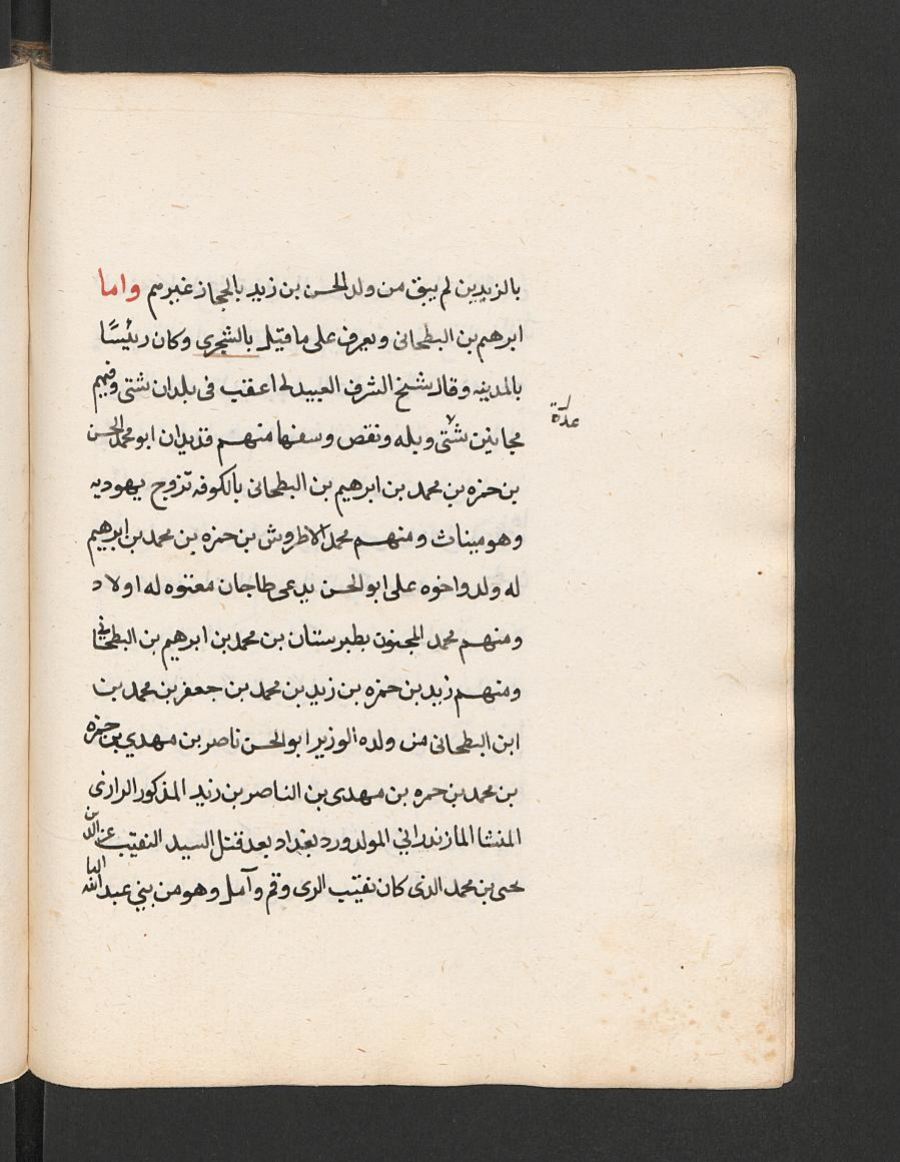 بالزيدين لم يبق من ولد الحسن بن زيد بالحجاز غيرهم واما
ابرهيم بن البطحانى ويعرف على ما قيل بالشجرى وكان رئيسًا
بالمدينه وقال شيخ الشرف العبيدلى اعقب فى بلدان شتى وفيهم
عدة
مجانين شتى وبله ونقص وسفها منهم ابو محمد الحسن
بن حمزه بن محمد بن ابرهيم بن البطحانى بالكوفه تزوج يهوديه
وهو ميناث ومنهم محمد الاطروش بن حمزه بن محمد بن ابرهيم
له ولد واخوه على ابو الحسن يدعى طاجان معتوه له اولاد
ومنهم محمد المجنون بطبرستان بن محمد بن ابرهيم بن البطحانى
ومنهم زيد بن حمزه بن زيد بن محمد بن جعفر بن محمد بن
ابن البطحانى من ولده الوزير ابو الحسن ناصر بن مهدي بن حمزه
بن محمد بن حمزه بن مهدى بن الناصر بن زيد المذكور الرازى
المنشا المازندراني المولد ورد بغداد بعد قتل السيد النقيب عز الدين
يحيى بن محمد الذى كان نقيب الرى وقم وآمل وهو من بني عبد الله البا